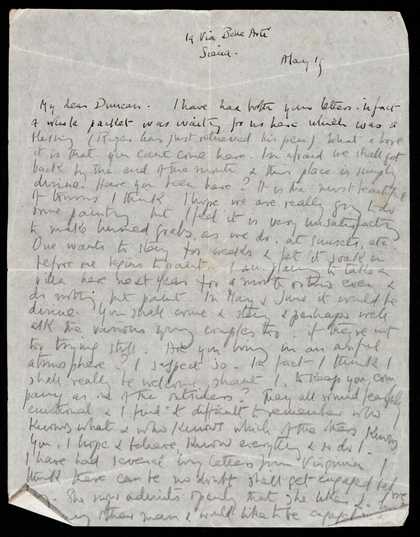 19 Via Belle Arti
Siena.
May 19
My dear Duncan. I have had both your letters - In fact
a whole packet was waiting for us here which was a
blessing (Roger has just retrieved his pen) What a bore
it is that you can't come here. I'm afraid we shall get
back by the end of the month & this place is simply
divine. Have you been here? It is the most beautiful
of towns I think. I hope we are really going to do
some painting but I feel it is very unsatisfactory
to make hurried grabs, as we do, at sunsets, etc.
One wants to stay for weeks & let it soak in
before one begins to paint. I am planning to take a
villa here next year for a month or even &
do nothing but paint. In May & June it would be
divine. You shall come & stay & perhaps we'll
ask the various young couples too if they're not
too trying still. Are you living in an awful
atmosphere? I suspect so. In fact I think I
shall really be welcome, shan't I, to keep you com
pany as one of the outsiders? They all sound fearfully
emotional & I find it difficult to remember who
knows what & who knows which of the others knows
You, I hope & believe, know everything & so do I.
I have had several long letters from Virginia. I
think there can be no doubt shall get engaged
She now admits openly that she likes
any other man & would like to be engaged